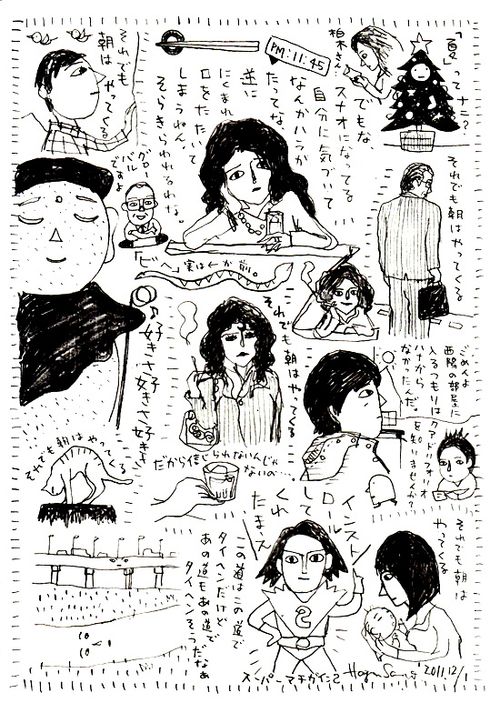 「夏」って ナニ？
柏木さん…
PM:11:45
でもな
スナオになってる
自分に気づいて…
なんかハラが
たってな。
逆に
にくまれ
口をたたいて
しまうねん。
そらきらわれるわな。
それでも
朝は
やってくる
グロー
バル
ですよ
それでも朝はやってくる
「ビ〜」実は←が前。
♪好きさ好きさ好きさ
それでも朝はやってくる
ごめんよ
西陽の部屋に
入るつもりは
ハナから
なかったんだ。
を知りませんか？
それでも朝はやってくる
だから信じられないんじゃ
ないの…。
インストール
して
くれ
たまえ
この道はこの道で
タイヘンだけど
あの道もあの道で
タイヘンそうだなぁ
スーパーマチがイた2
それでも朝は
やってくる
2011.12/1